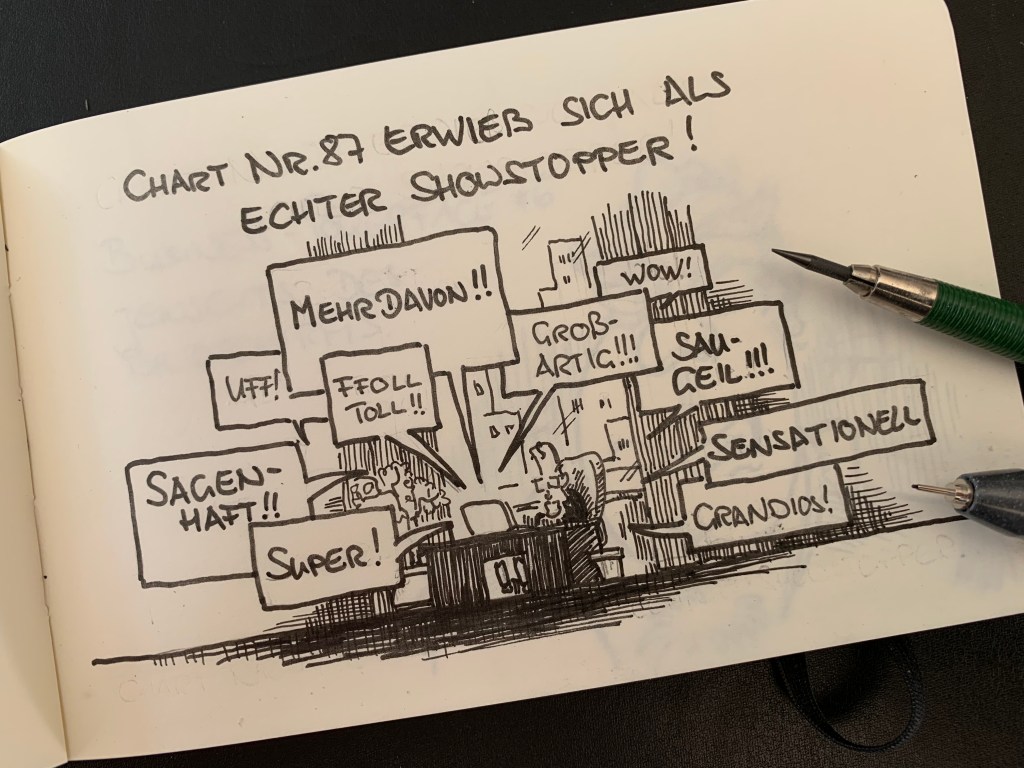 CHART NR. 87 ERWIEß SICH ALS
ECHTER SHOWSTOPPER!
MEHR DAVON!!
WOW!
GROß-
ARTIG!!!
SAU-
GEIL!!!
UFF!
FFOLL
TOLL!!
SENSATIONELL
SAGEN-
HAFT!!
GRANDIOS!
SUPER!